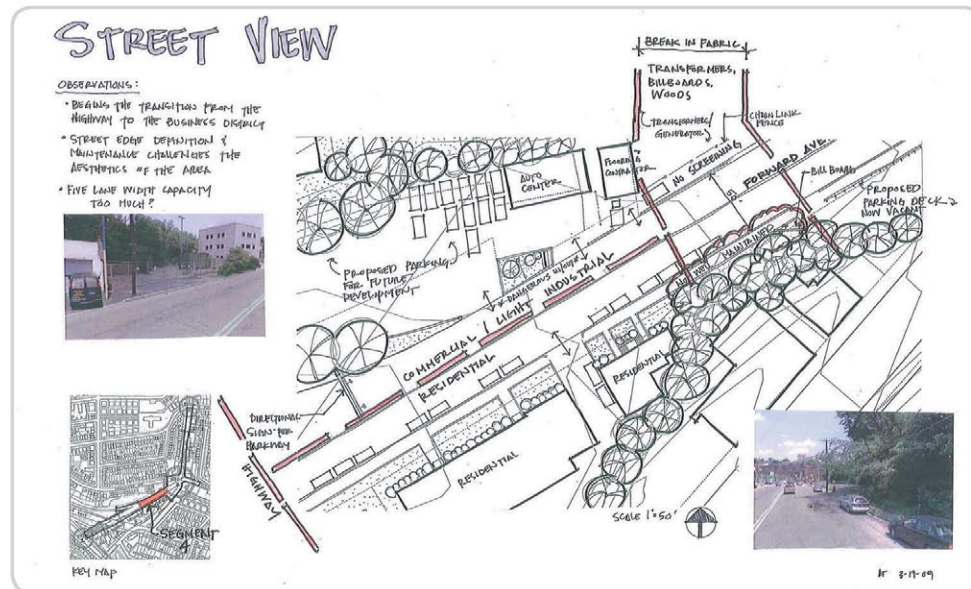 STREET VIEW
OBSERVATIONS:
• BEGINS THE TRANSITION FROM THE
HIGHWAY TO THE BUSINESS DISTRICT
• STREET EDGE DEFINITION &
MAINTENANCE CHALLENGES THE
AESTHETICS OF THE AREA
• FIVE LANE WIDTH CAPACITY
TOO MUCH?
BREAK IN FABRIC
TRANSFORMERS,
BILLBOARDS,
WOODS
TRANSFORMERS/
GENERATOR
CHAIN LINK
FENCE
FLOORING
CONTRACTOR
AUTO
CENTER
NO SCREENING
FORWARD AVE
BILL BOARD
PROPOSED
PARKING DECK
NOW VACANT
PROPOSED PARKING
FOR FUTURE
DEVELOPMENT
DANGEROUS
NOT WELL MAINTAINED
COMMERCIAL / LIGHT INDUSTRIAL
RESIDENTIAL
RESIDENTIAL
RESIDENTIAL
DIRECTIONAL
SIGN FOR
PARKWAY
HIGHWAY
SEGMENT
4
KEY MAP
SCALE 1"=50'
3-19-09